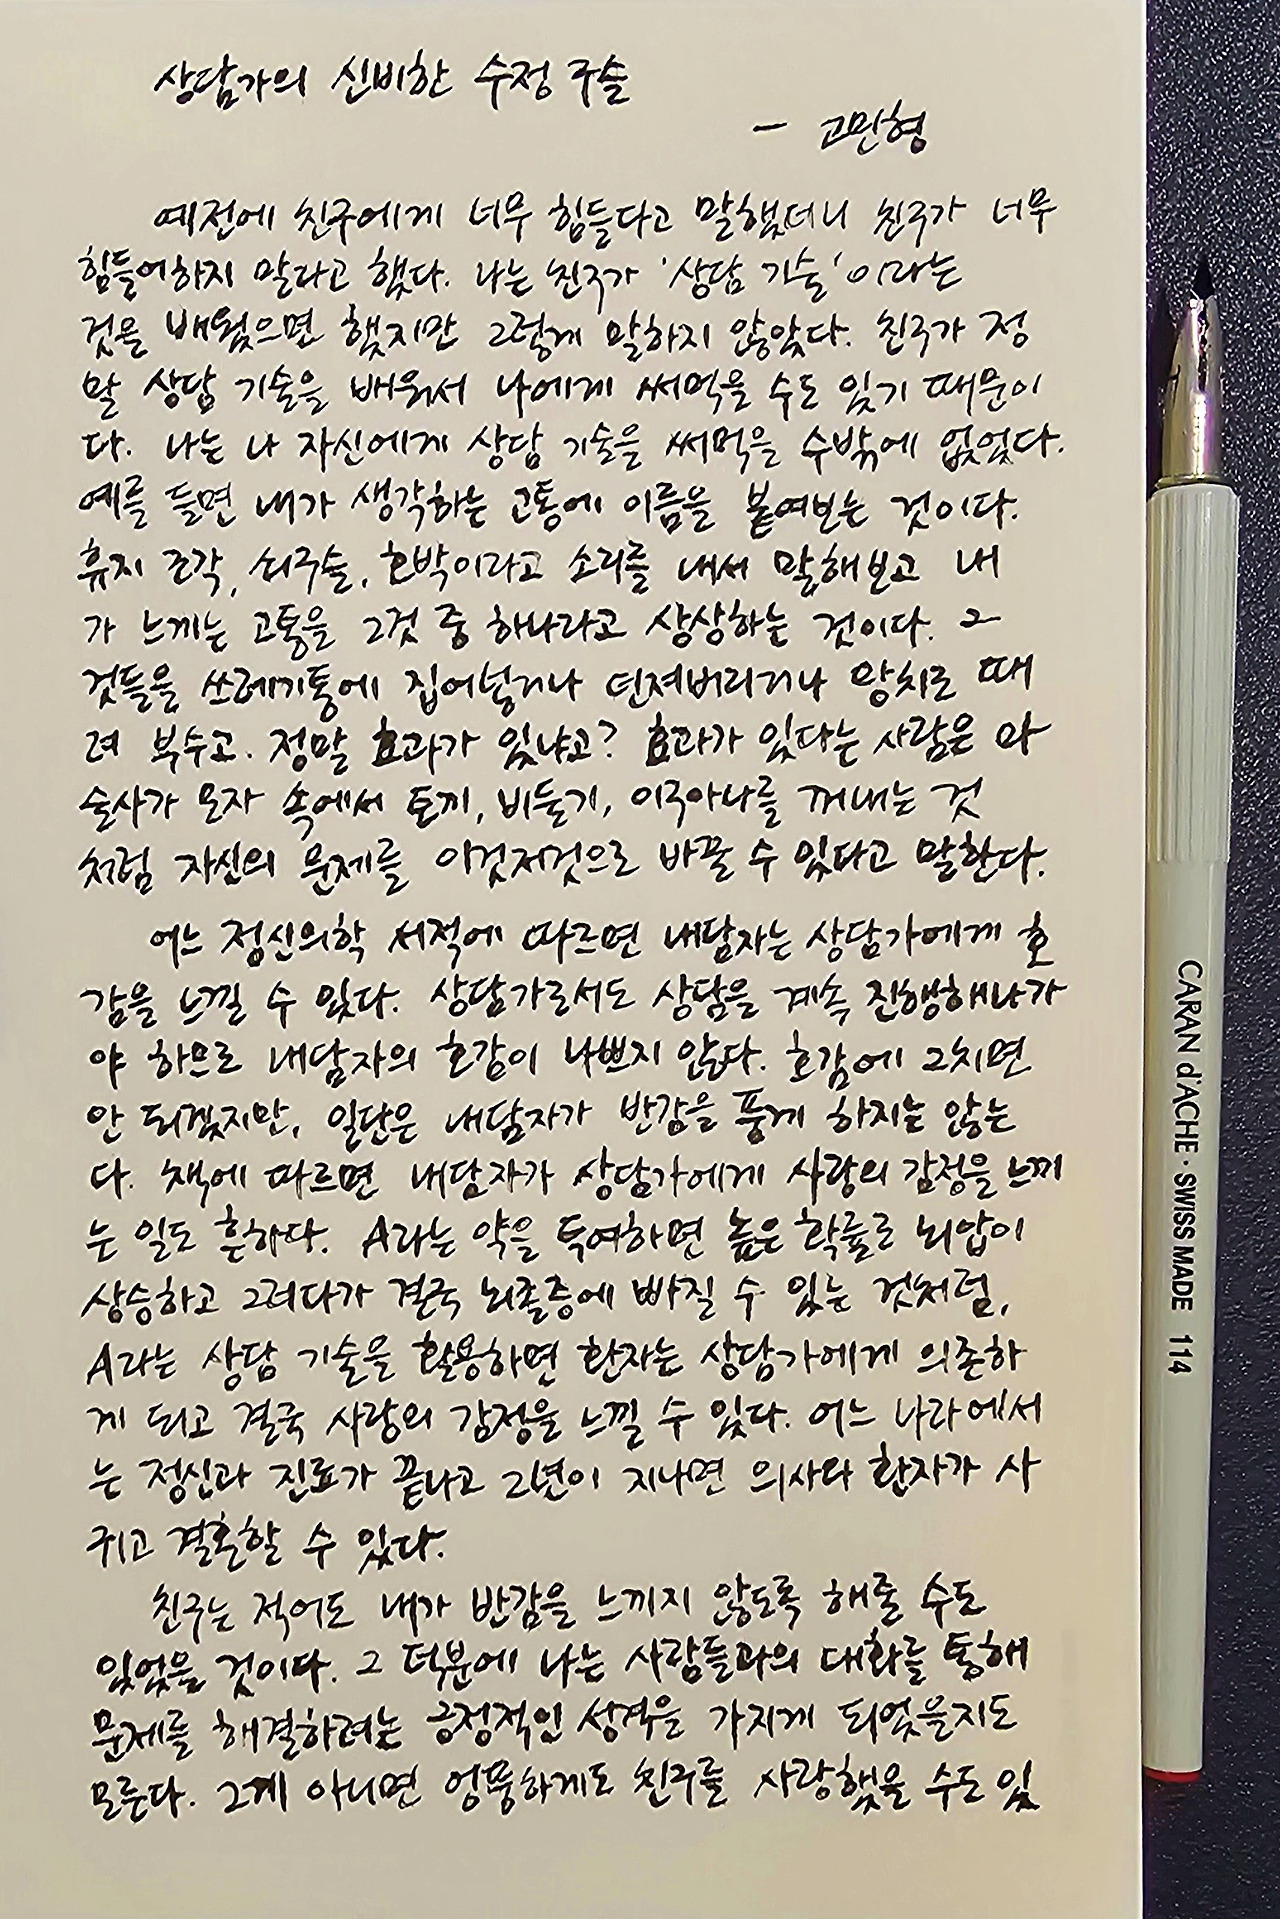 상담가의 신비한 수정 구슬
- 고민형
예전에 친구에게 너무 힘들다고 말했더니 친구가 너무
힘들어하지 말라고 했다. 나는 친구가 '상담 기술'이라는
것을 배웠으면 했지만 그렇게 말하지 않았다. 친구가 정
말 상담 기술을 배워서 나에게 써먹을 수도 있기 때문이
다. 나는 나 자신에게 상담 기술을 써먹을 수밖에 없었다.
예를 들면 내가 생각하는 고통에 이름을 붙여보는 것이다.
휴지 조각, 쇠구슬, 호박이라고 소리를 내서 말해보고 내
가 느끼는 고통을 그것 중 하나라고 상상하는 것이다. 그
것들을 쓰레기통에 집어넣거나 던져버리거나 망치로 때
려 부수고. 정말 효과가 있냐고? 효과가 있다는 사람은 마
술사가 모자 속에서 토끼, 비둘기, 이구아나를 꺼내는 것
처럼 자신의 문제를 이것저것으로 바꿀 수 있다고 말한다.
어느 정신의학 서적에 따르면 내담자는 상담가에게 호
감을 느낄 수 있다. 상담가로서도 상담을 계속 진행해나가
야 하므로 내담자의 호감이 나쁘지 않다. 호감에 그치면
안 되겠지만, 일단은 내담자가 반감을 품게 하지는 않는
다. 책에 따르면 내담자가 상담가에게 사랑의 감정을 느끼
는 일도 흔하다. A라는 약을 투여하면 높은 확률로 뇌압이
상승하고 그러다가 결국 뇌졸중에 빠질 수 있는 것처럼,
A라는 상담 기술을 활용하면 환자는 상담가에게 의존하
게 되고 결국 사랑의 감정을 느낄 수 있다. 어느 나라에서
는 정신과 진료가 끝나고 2년이 지나면 의사와 환자가 사
귀고 결혼할 수 있다.
친구는 적어도 내가 반감을 느끼지 않도록 해줄 수도
있었을 것이다. 그 덕분에 나는 사람들과의 대화를 통해
문제를 해결하려는 긍정적인 성격을 가지게 되었을지도
모른다. 그게 아니면 엉뚱하게도 친구를 사랑했을 수도 있
CARAN d'ACHE · SWISS MADE 114